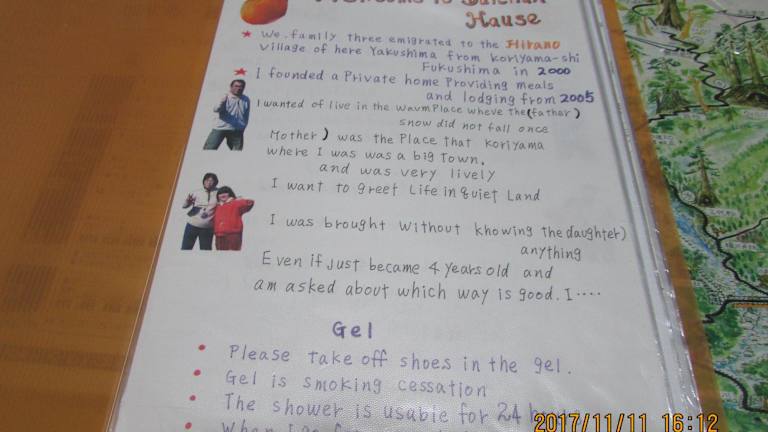 to
Hause
★ We.family three emigrated to the Hirano
Village of here Yakushima from Koriyama-shi
Fukushima in 2000
★ I founded a Private home Providing meals
and lodging from 2005
I wanted of live in the warm Place where the (father)
snow did not fall once
Mother) was the Place that Koriyama
where I was was a big town.
and was very lively
I want to greet Life in quiet Land
I was brought without knowing the daughter)
anything
Even if Just became 4 years old and
am asked about which way is good. I····
Gel
• Please take off shoes in the gel.
• Gel is smoking cessation
• The shower is usable for 24
• When I go
2017/11/11 16:12